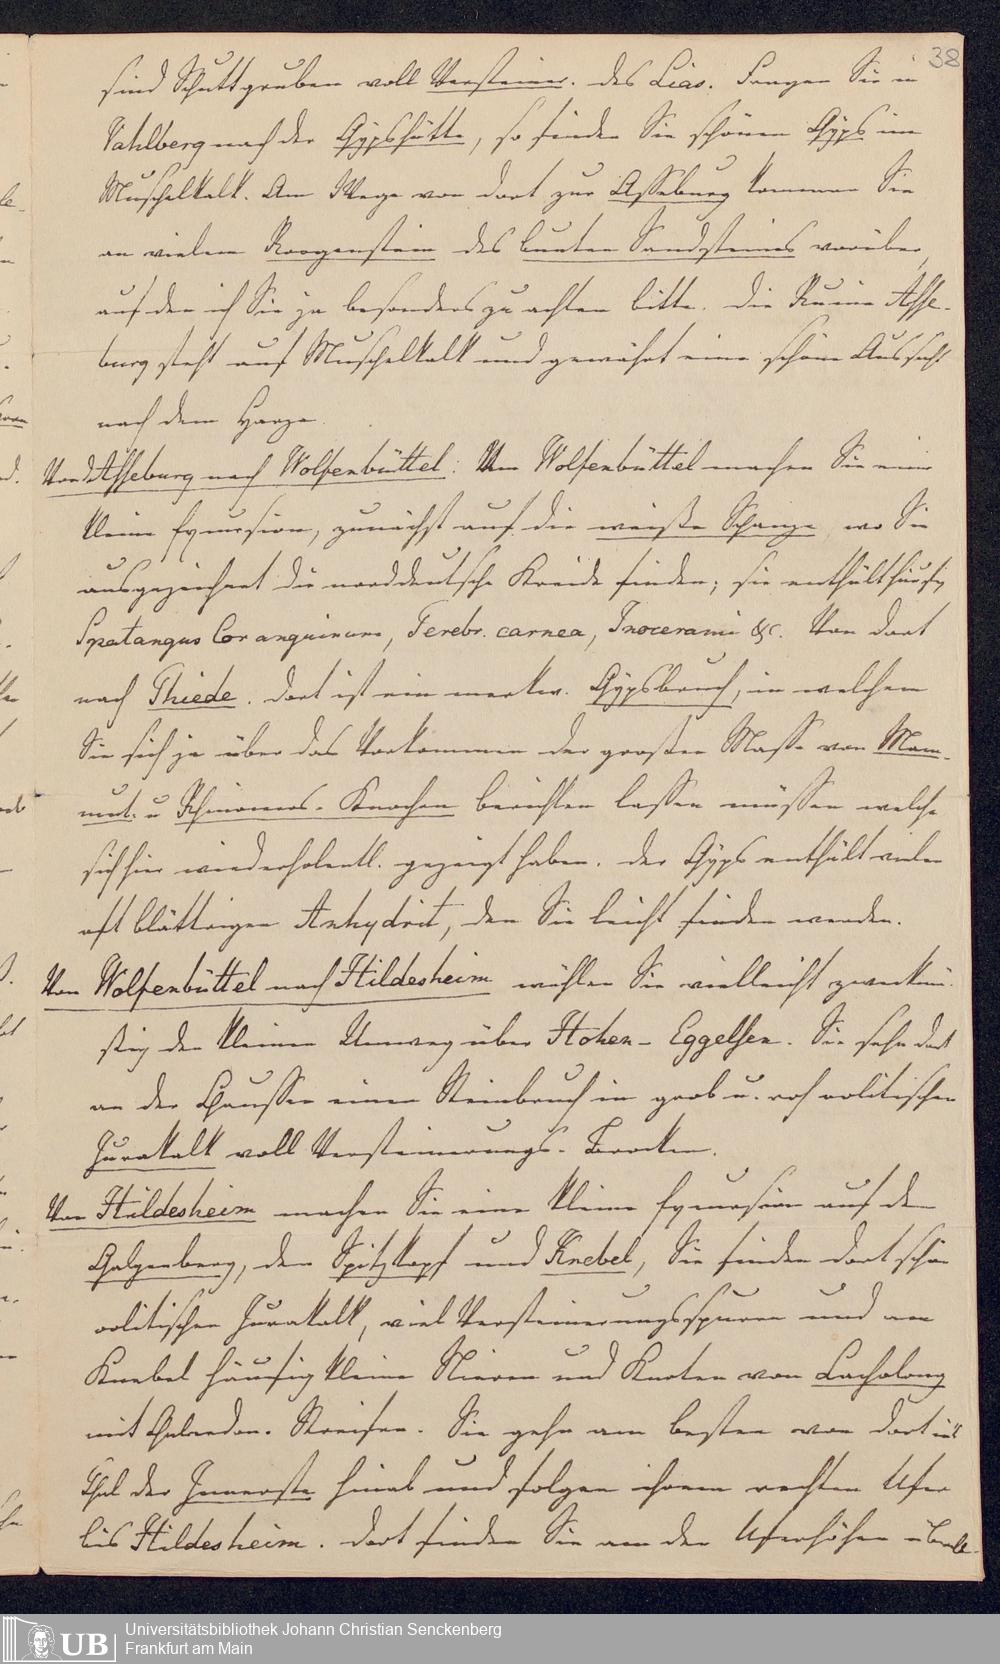 38
sind Schuttgruben voll Versteiner. des Lias. Fragen Sie in
Vahlberg nach der Gÿpshütte, so finden Sie schönen Gÿps im
Muschelkalk. Am Wege von dort zur Asseburg kommen Sie
an vielem Roogenstein des bunten Sandsteines vorüber,
auf den ich Sie ja besonders zu achten bitte. Die Ruine Asse-
burg steht auf Muschelkalk und gewährt eine schöne Aussicht
nach dem Harze.
Von d Asseburg nach Wolfenbüttel: Von Wolfenbüttel machen Sie eine
kleine Excursion, zunächst auf die weiße Schanze, wo Sie
ausgezeichnet die norddeutsche Kreide finden; sie enthält häufig
Spatangus Cor anguinum, Terebr. carnea, Inocerami &c. Von dort
nach Thiede. Dort ist ein merkw. Gÿpsbruch, in welchem
Sie sich ja über das Vorkommen der großen Masse von Mam-
mut- u Rhinoceros-Knochen berichten lassen müssen welche
sich hier wiederholentl. gezeigt haben. Der Gÿps enthält vielen
oft blättrigen Anhydrit, den Sie leicht finden werden.
Von Wolfenbüttel nach Hildesheim wählen Sie vielleicht zweckmä-
ßig den kleinen Umweg über Hohen-Eggelsen. Sie sehn dort
an der Chaussee einen Steinbruch in grob u. roh oolitischen
Jurakalk voll Versteinerungs-Brocken.
Von Hildesheim machen Sie eine kleine Excursion auf den
Galgenberg, den Spitzkopf und Knebel, Sie finden dort schön
oolitischen Jurakalk, viel Versteinerungsspuren und am
Knebel häufig kleine Nieren und Knoten von Cacholong
mit Calcedon-Streifen. Sie gehn am besten von dort ins
Thal der Innerste hinab und folgen ihrem rechten Ufer
bis Hildesheim. Dort finden Sie an den Uferhöhen überall
UB
Universitätsbibliothek Johann Christian Senckenberg
Frankfurt am Main